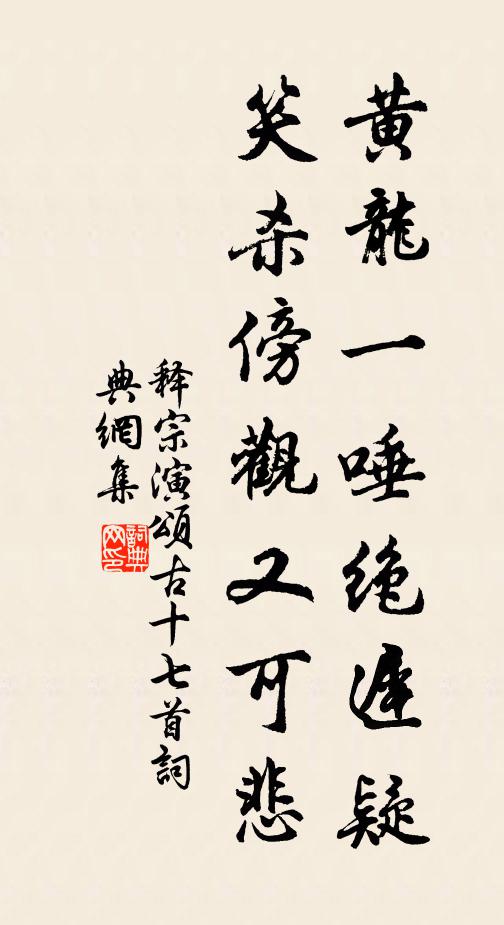 黄龍一唾絶遲疑
笑杀傍觀又可悲
释宗演頌古十七首詞
典網集
詞典网印